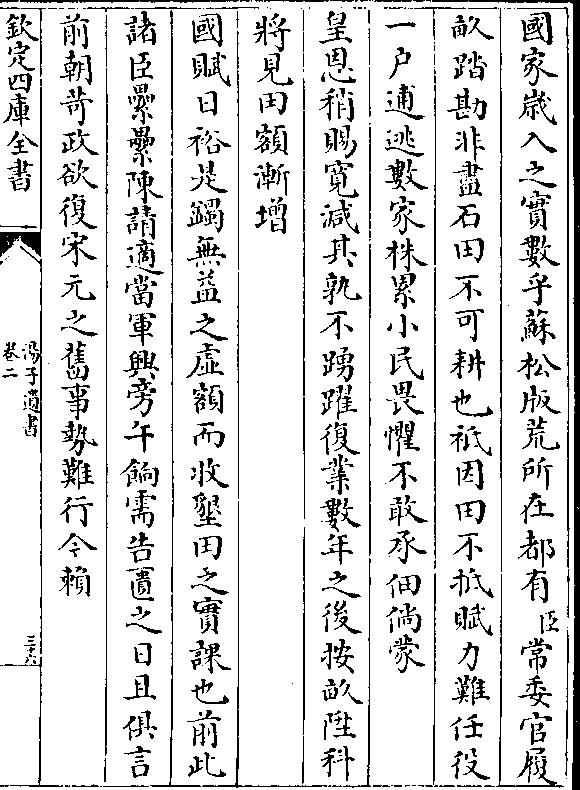 國家歳入之實數乎蘇松版荒所在都有臣常委官履
畝踏勘非盡石田不可耕也祇因田不抵賦力難任役
一户逋逃數家株累小民畏懼不敢承佃倘蒙
皇恩稍賜寛減其孰不踴躍復業數年之後按畝陞科
將見田額漸增
國賦日裕是蠲無益之虚額而收墾田之實課也前此
諸臣纍纍陳請適當軍興旁午餉需告匱之日且俱言
前朝苛政欲復宋元之舊事勢難行今賴
欽定四庫全書
湯子遺書
卷二
三十六